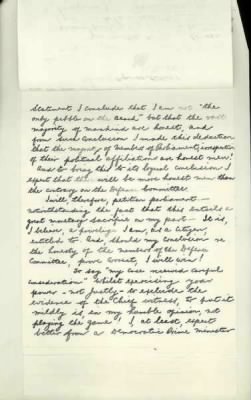 Statement I conclude that I am not "the
only pebble on the beach" but that the vast
majority of mankind are honest, and
from such conclusion I made this deduction
that the majority of members of Parliament, irrespective
of their political affiliations are honest men!
And to bring this to its logical conclusion I
expect that there will be more honest men than
the contrary on the Defence Committee.
I will, therefore, petition parliament —
notwithstanding the fact that this entails a
great monetary sacrifice on my part — It is,
I believe, a privilege I am, as a citizen,
entitled to. And, should my conclusion re
the honesty of the members of the Defence
Committee, prove correct, I will win!
To say "my case received careful
consideration" whilst exercising your
power — not justly — to exclude the
evidence of the chief witness, to put it
mildly is, in my humble opinion, not
playing the game & I, at least, expect
better from a Democratic Prime Minister